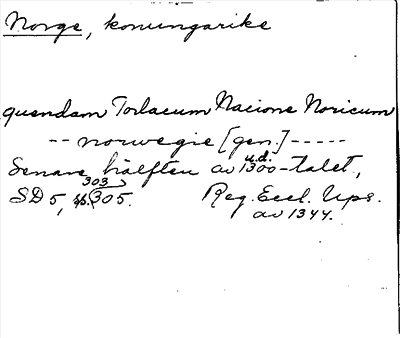 Norge, konungarike
quendam Torlacum Nacione Noricum
-- norwegie [gen.] -----
Senare hälften av 1300-talet, u.d.
SD 5, s. 303 305. Reg. Eccl. Ups.
av 1344.